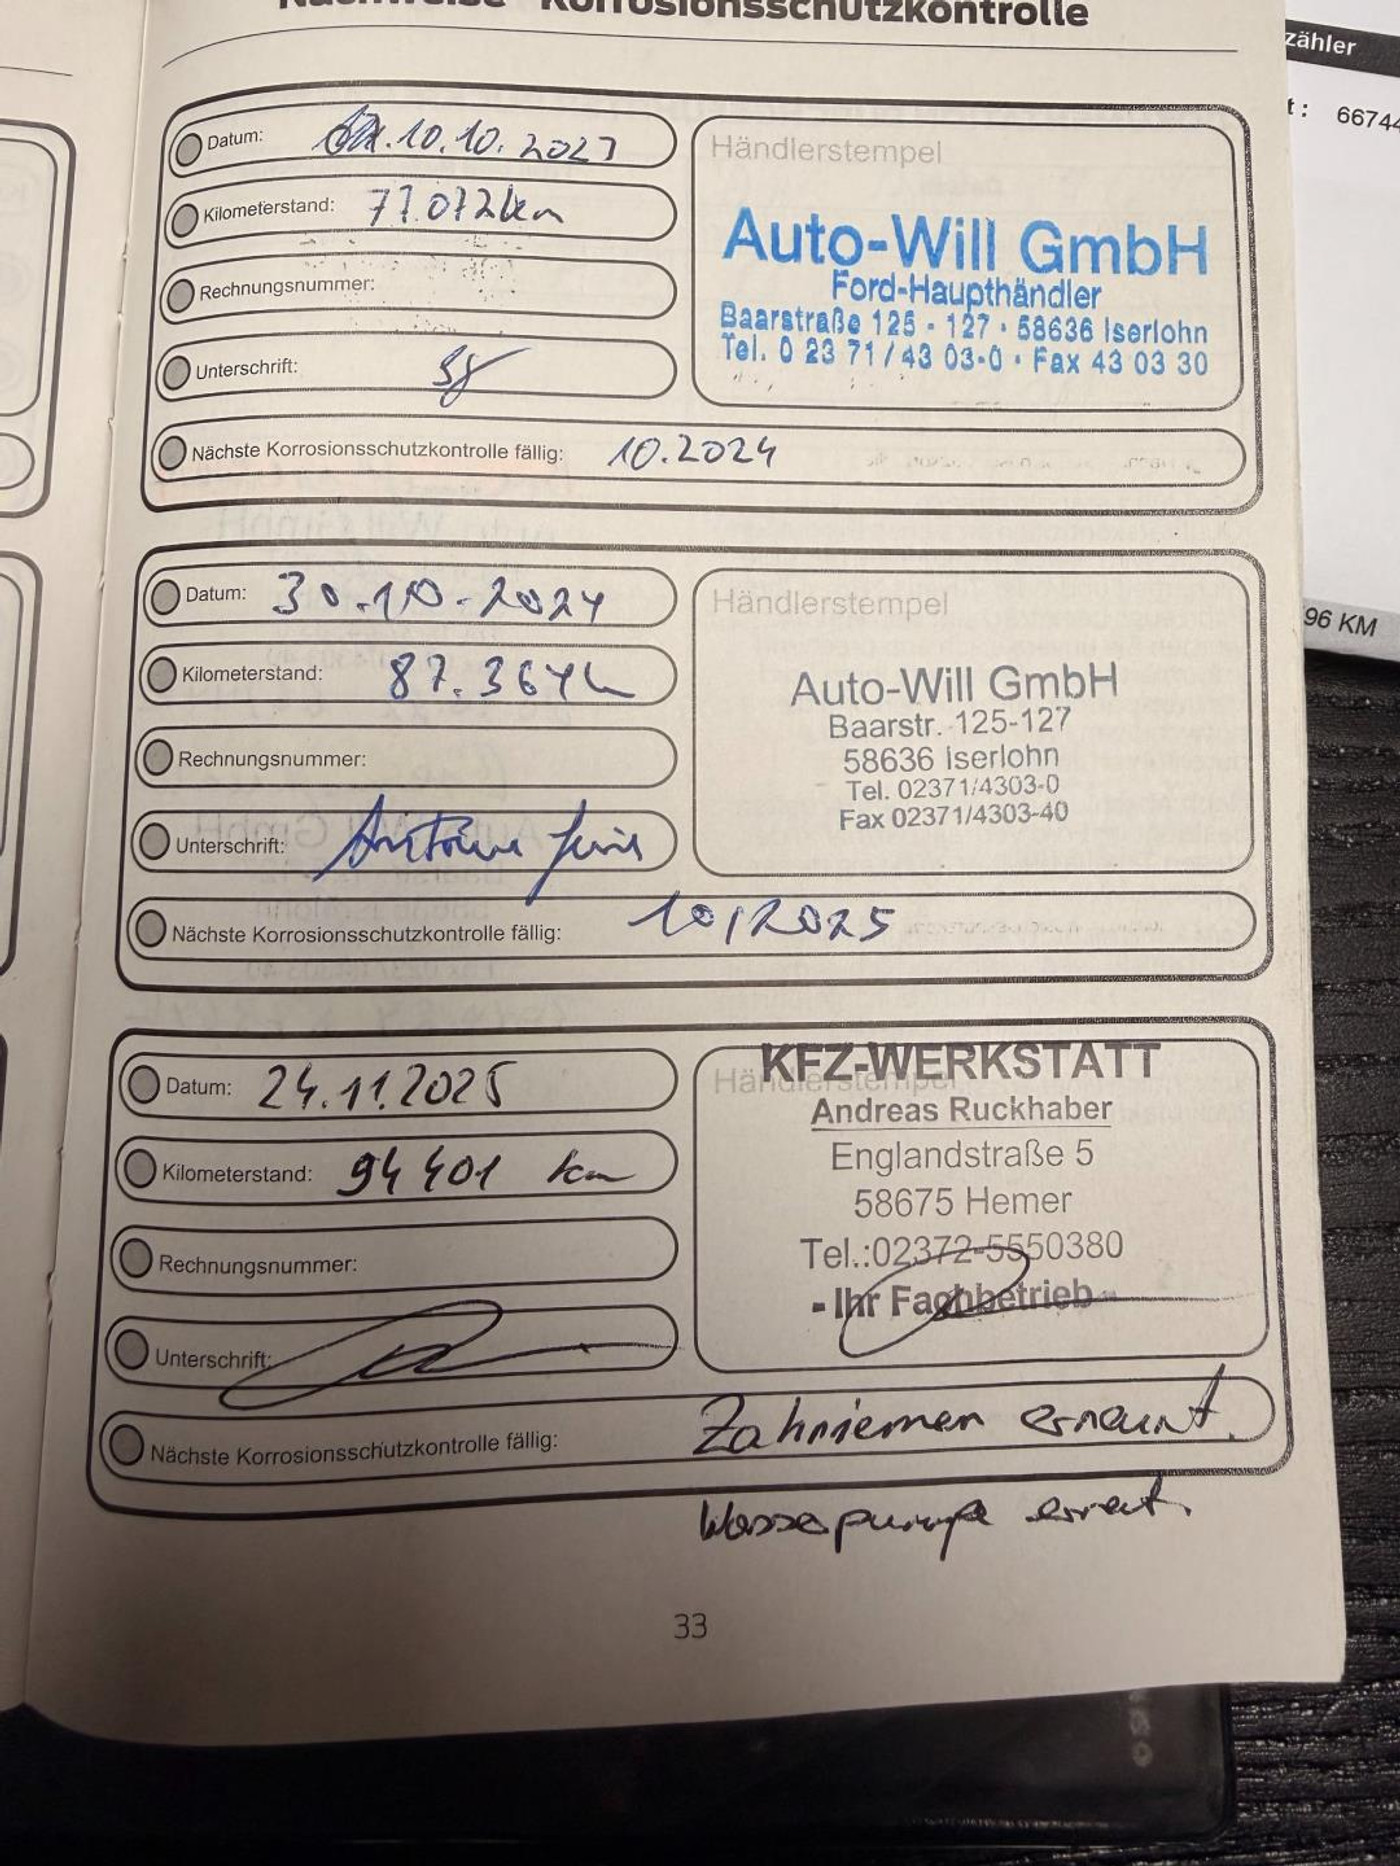 Nachweise Korrosionsschutzkontrolle
zähler
t: 66744
Datum: 10.10.2023
Kilometerstand: 77.072km
Rechnungsnummer:
Unterschrift:
Händlerstempel
Auto-Will GmbH
Ford-Haupthändler
Baarstraße 125 - 127 · 58636 Iserlohn
Tel. 0 23 71 / 43 03-0 · Fax 43 03 30
Nächste Korrosionsschutzkontrolle fällig: 10.2024
96 KM
Datum: 30.10.2024
Kilometerstand: 87.364
Rechnungsnummer:
Unterschrift:
Händlerstempel
Auto-Will GmbH
Baarstr. 125-127
58636 Iserlohn
Tel. 02371/4303-0
Fax 02371/4303-40
Nächste Korrosionsschutzkontrolle fällig: 10/2025
Datum: 24.11.2025
Kilometerstand: 94 401 km
Rechnungsnummer:
Unterschrift:
Händlerstempel
KFZ-WERKSTATT
Andreas Ruckhaber
Englandstraße 5
58675 Hemer
Tel.:02372-5550380
- Ihr Fachbetrieb -
Nächste Korrosionsschutzkontrolle fällig: Zahnriemen erneuert.
Wasserpumpe erneut.
33